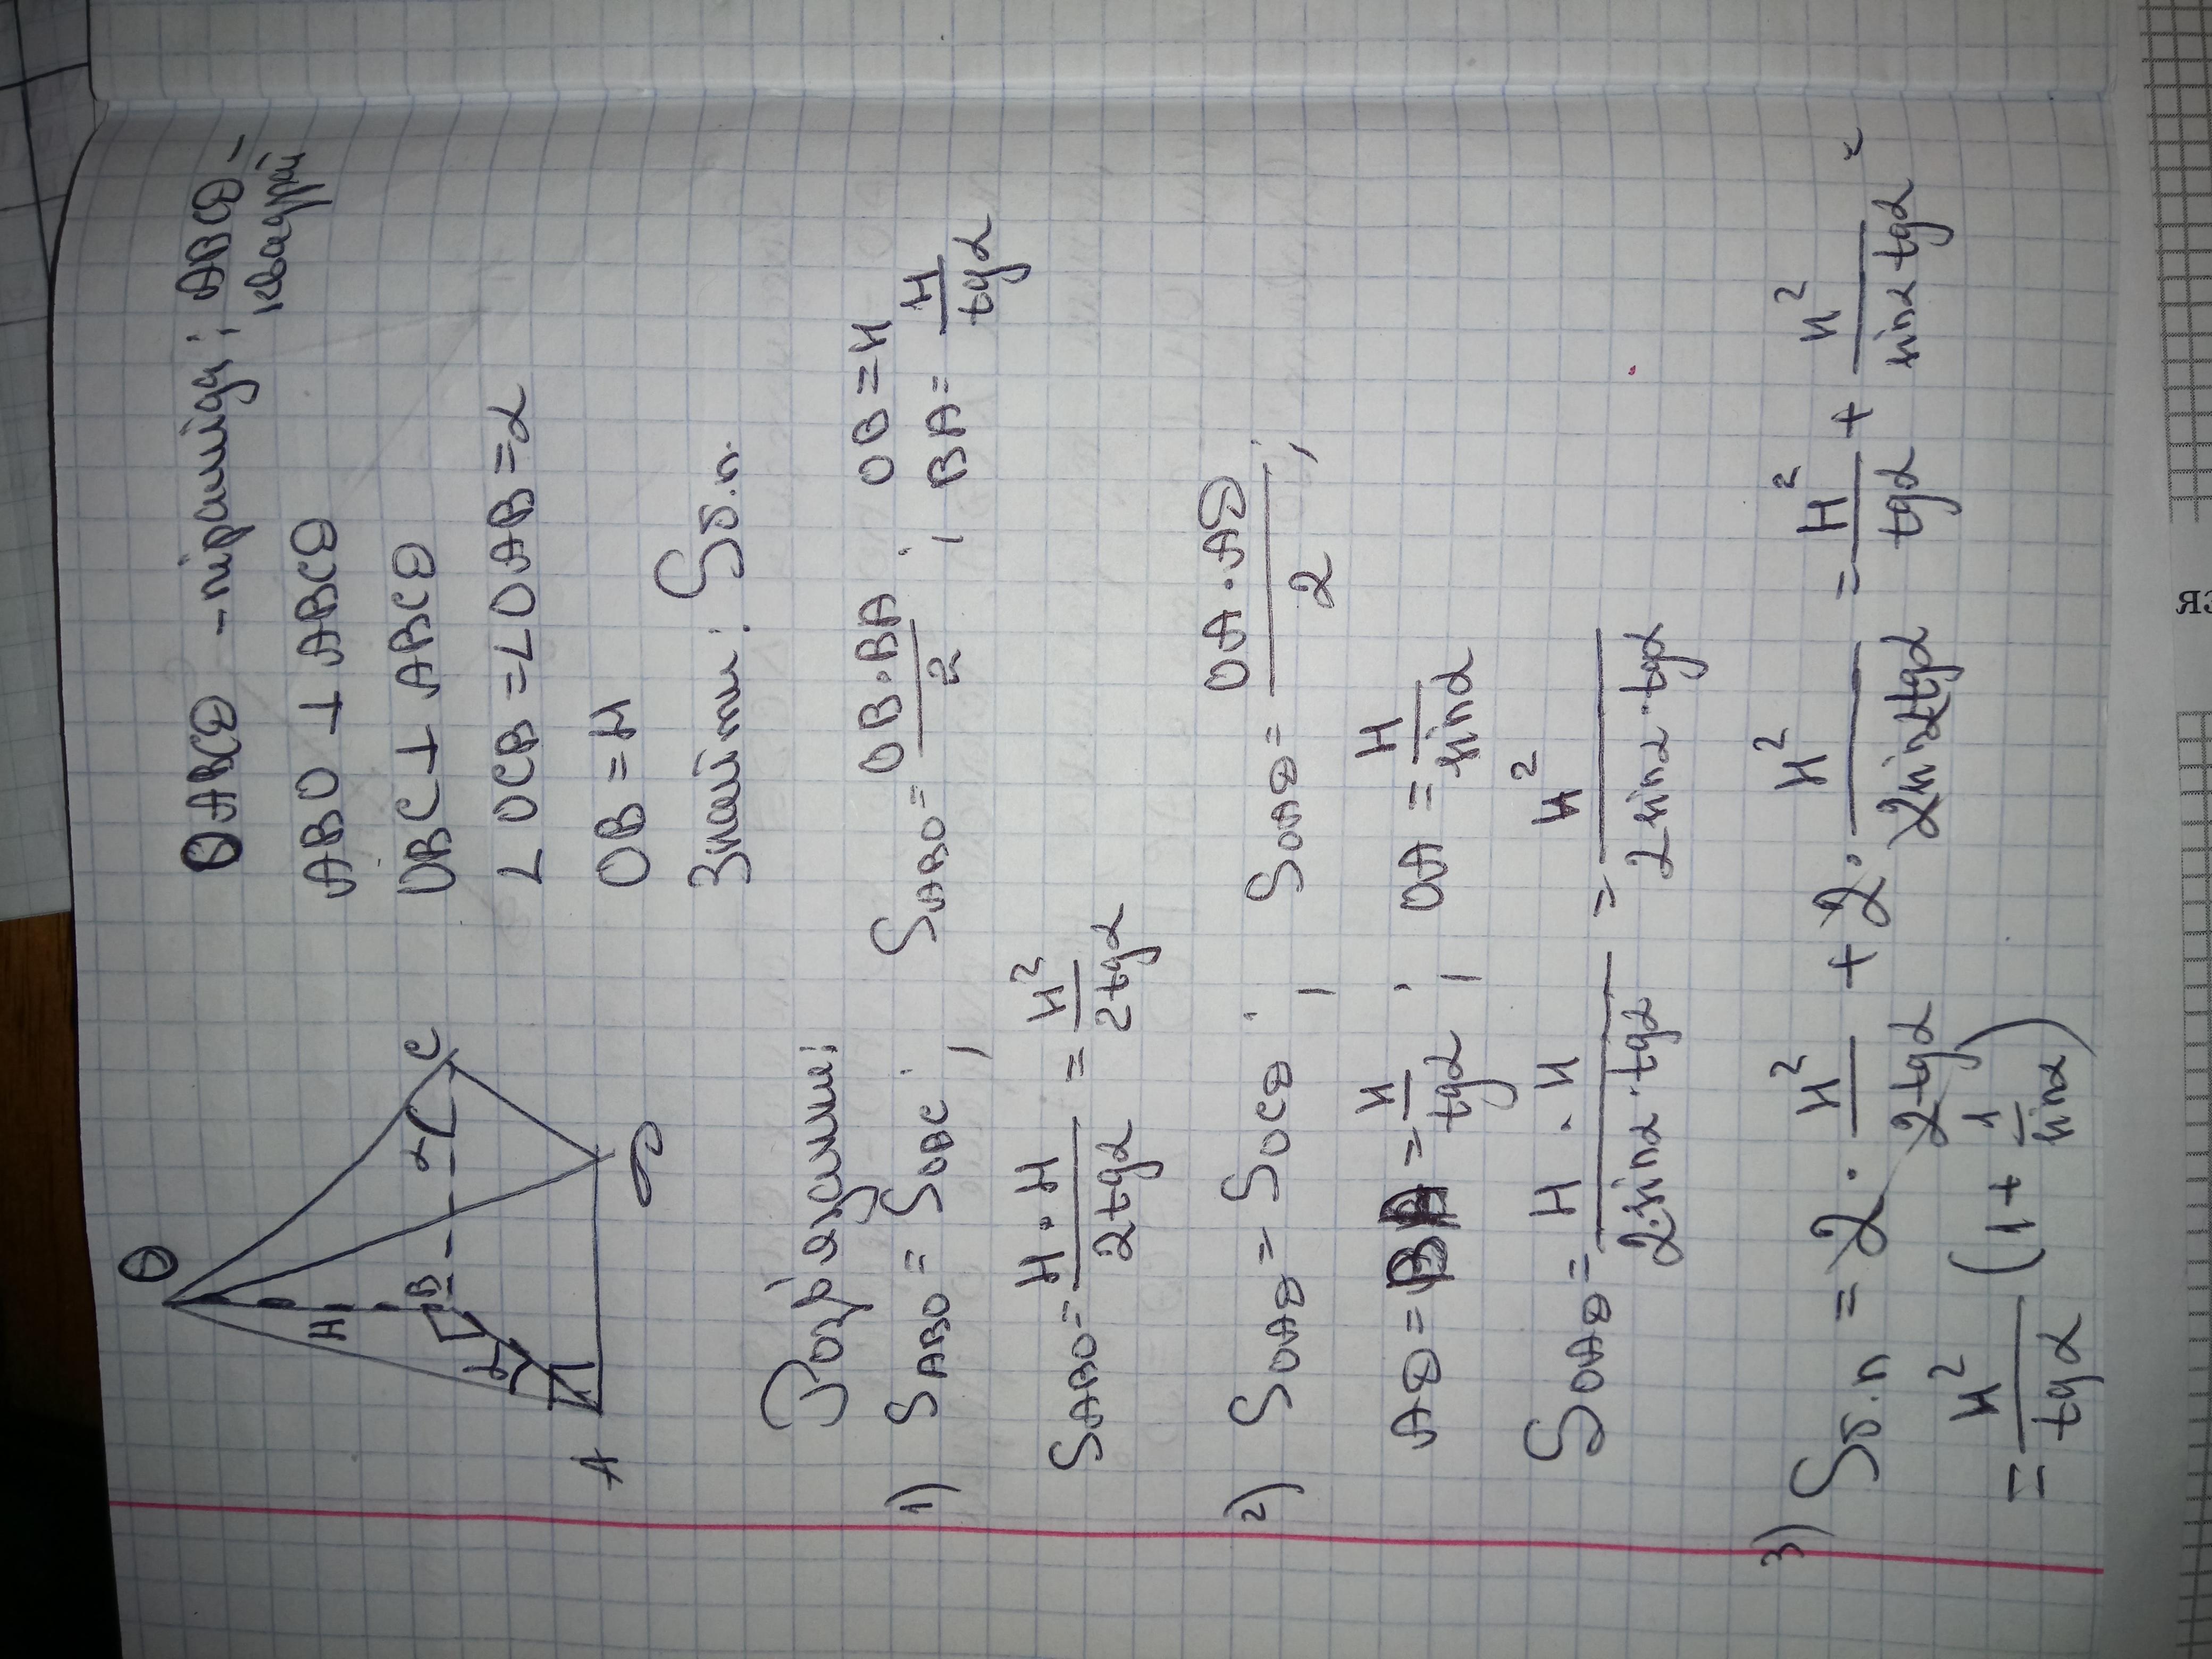 OABCD - піраміда; ABCD -
квадрат
ABO ⊥ ABCD
OBC ⊥ ABCD
∠OCB = ∠OAB = α
OB = H
Знайти: Sб.п.
O
H
B
C
α
α
A
D
Розв'язання:
1) S_ABO = S_OBC; S_ABO = OB·BA/2; OB = H
BA = H/tgα
S_ABO = H·H/2tgα = H²/2tgα
2) S_OAD = S_OCD; S_OAD = OA·AD/2;
AD = BA = H/tgα; OA = H/sinα
S_OAD = H·H/2·sinα·tgα = H²/2sinα·tgα
3) Sб.п = 2·H²/2tgα + 2·H²/2sinαtgα = H²/tgα + H²/sinαtgα =
= H²/tgα (1 + 1/sinα)
яс